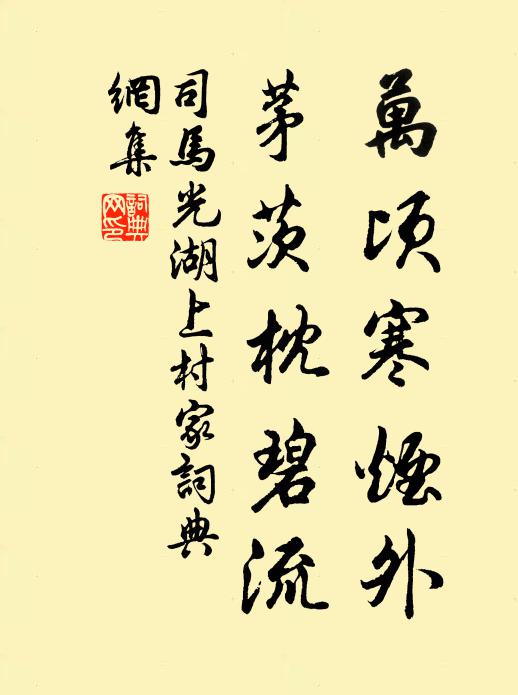 萬頃寒煙外
茅茨枕碧流
司馬光湖上村家詞典
網集
詞典
网印